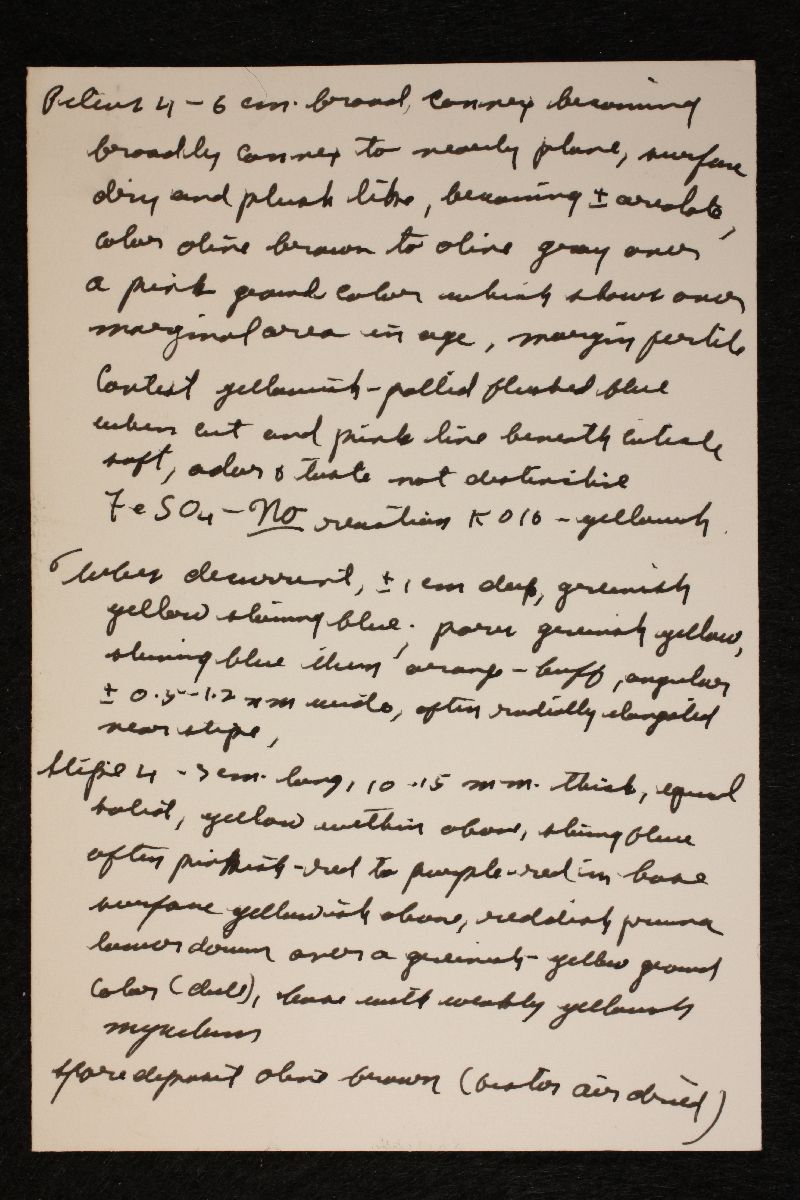 Pileus 4 - 6 cm. broad, convex becoming
broadly convex to nearly plane, surface
dry and plush like, becoming ± areolate,
color olive brown to olive gray over
a pink ground color which shows over
marginal area in age, margin fertile
Context yellowish-pallid flushed blue
when cut and pink line beneath cuticle
soft, odor & taste not distinctive
FeSO4 - No reaction KOH - yellowish.
Tubes decurrent, ± 1 cm deep, greenish
yellow staining blue; pores greenish yellow,
staining blue then orange-buff, angular
± 0.5-1.2 mm wide, often radially elongated
near stipe,
Stipe 4 - cm. long, 10-15 mm. thick, equal
solid, yellow within above, staining blue
often pinkish-red to purple-red in base
surface yellowish above, reddish pruina
lower down over a greenish-yellow ground
color (dull), base with weakly yellowish
mycelium
spore deposit olive brown (bister air dried)